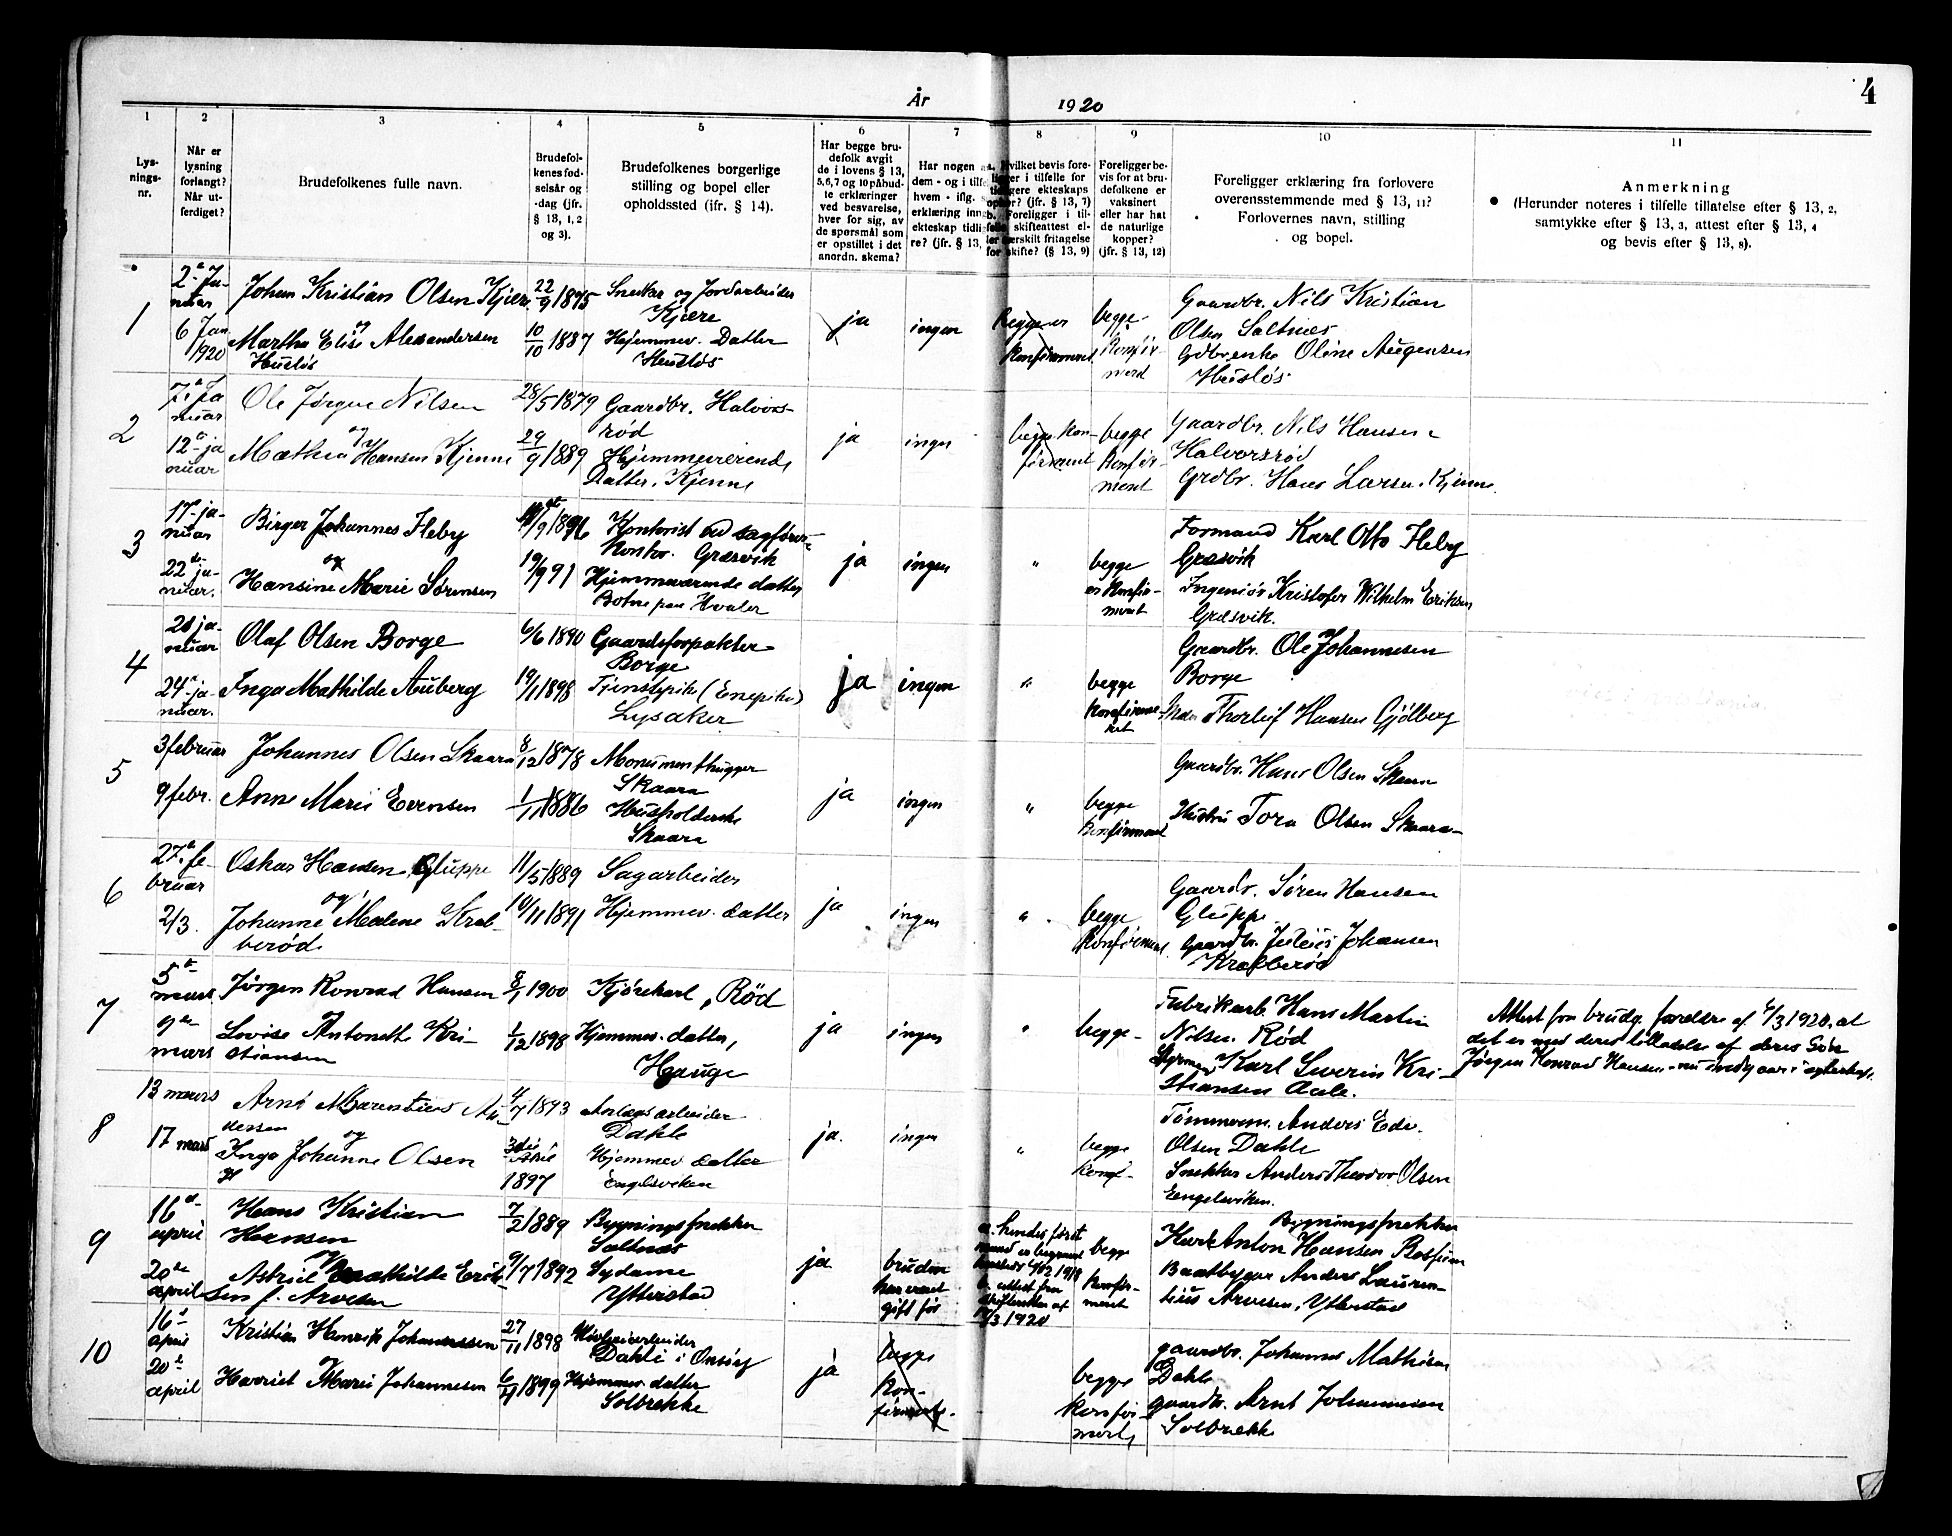 4
År 1920
1 2 3 4 5 6 7 8 9 10 11
Lys-
nings-
nr.
Når er
lysning
forlangt?
Når ut-
ferdiget?
Brudefolkenes fulle navn.
Brudefol-
kenes fød-
selsår og
-dag (jfr.
§ 13, 1, 2
og 3).
Brudefolkenes borgerlige
stilling og bopel eller
opholdssted (ifr. § 14).
Har begge bru-
defolk avgit
de i lovens § 13,
5, 6, 7 og 10 påbud-
te erklæringer
ved besvarelse,
hver for sig, av
de spørsmål som
er opstillet i det
anordn. skema?
Har nogen
dem - og i tilf
hvem - iflg.
erklæring inn
ekteskap tidli
re? (jfr. § 13,
Hvilket bevis fore-
ligger i tilfelle for
tidligere ekteskaps
ophør? (jfr. § 13, 7)
b. Foreligger i til-
felle skifteattest el-
ler særskilt fritagelse
for skifte? (§ 13, 9)
Foreligger be-
vis for at bru-
defolkene er
vaksinert
eller har hat
de naturlige
kopper?
(jfr. § 13, 12)
Foreligger erklæring fra forlovere
overensstemmende med § 13, 11?
Forlovernes navn, stilling
og bopel.
Anmerkning
(Herunder noteres i tilfelle tillatelse efter § 13, 2,
samtykke efter § 13, 3, attest efter § 13, 4
og bevis efter § 13, 8).
1
2 Ja-
nuar
6 Jan
1920
Johan Kristian Olsen Kjære
og
Martha Elise Alexandersen
Husløs
22/9 1875
10/10 1887
Snekker og Jordarbeider
Kjære
Hjemmev. Datter
Husløs
ja
ingen
begge er
konfirmert
begge
konfir-
mert
Gaardbr. Nils Kristian
Olsen Saltnes
Gdbrenke Oline Augensen
Husløs
2
7 Ja
nuar
12 ja
nuar
Ole Jørgen Nilsen
og
Mathea Hansen Kjenne
28/5 1879
29/9 1889
Gaardbr. Halvors-
rød
Hjemmeværende
Datter, Kjenne
ja
ingen
begge kon-
firmert
begge
konfir-
mert
Gaardbr. Nils Hansen
Halvorsrød
Grdbr. Hans Larsen, Kjenne
3
17 ja-
nuar
22 ja-
nuar.
Birger Johannes Heby
og
Hansine Marie Sørensen
/9 1896
19/9 91
Kontorist ved sagfører-
kontor. Græsvik
Hjemmeværende datter
Botne paa Hvaler
ja
ingen
"
begge
er konfir-
mert
Formand Karl Otto Heby
Græsvik
Ingeniør Kristofer Wilhelm Eriksen
Græsvik.
4
21 ja-
nuar
24 ja-
nuar.
Olaf Olsen Borge
Inga Mathilde Auberg
6/6 1890
19/1 1898
Gaardsforpakter
Borge
Tjenstepike (Enepike)
Lysaker
ja
ingen
"
begge
konfirme-
ret
Gaardbr. Ole Johannesen
Borge
Thorleif Hansen Gjölberg
5
3 februar
9 febr.
Johannes Olsen Skaara
Anne Marie Evensen
8/12 1878
1/11 1886
Monumenthugger
Skaara
Husholderske
Skaara
ja
ingen
"
begge
konfirmert
Gaardbr. Hans Olsen Skaara
Hustru Tora Olsen Skaara
6
27 fe-
bruar
2/3.
Oskar Hansen Gluppe
og
Johanne Malene Kral-
berød
11/5 1889
14/11 1891
Sagarbeider
Hjemmev. datter
ja
ingen
"
begge
konfirmert
Gaardbr. Søren Hansen
Gluppe.
Gaardbr. Julius Johansen
Kralberød
7
5
mars
9
mars
Jørgen Konrad Hansen
Lovise Antonette Kri-
stiansen
8/1 1900
1/12 1898
Kjørekarl, Rød
Hjemmev. datter,
Hauge
ja
ingen
"
begge
Fabrikarb. Hans Martin
Nilsen Rød
Styrmand Karl Severin Kri-
stiansen Aale.
Attest fra brudg. forældre af 4/3 1920, at
det er med deres tilladelse af deres Søn
Jørgen Konrad Hansen nu indgaar i egteskab.
8
13 mars
17 mars
Arne Marentius An-
dersen
og
Inga Johanne Olsen
4/7 1893
1897
Anlægsarbeider
Dahle
Hjemmev datter
Engelsviken
ja.
ingen
"
begge
konf-
Tømmerm. Anders Edv.
Olsen Dahle
Snekker Anders Theodor Olsen
Engelsviken.
9
16
april
20
april
Hans Kristian
Hansen
og
Astrid Mathilde Erik-
sen f. Arvesen
7/2 1889
9/7 1892
Bygningssnekker
Saltnes
Sydame
Ytterstad
ja
bruden
har været
gift før
a. hendes først
mand er begravet
1918
b. attest fra
skifteretten af
/3 1920
begge
konfir-
mert
Bygningssnekker
Anton Hansen
Baatbygger Anders Lauren-
tius Arvesen, Ytterstad
10
16
april
20
april
Kristian Henrik Johannessen
og
Harriet Marie Johannesen
27/11 1898
1899
Dahle i Onsøy
Hjemmev. datter
Solbrekke
ja
begge
kon-
firmerte
begge
konfir-
mert
gaardbr. Johannes Mathisen
Dahle
gaardbr. Arnt Johannesen
Solbrekk